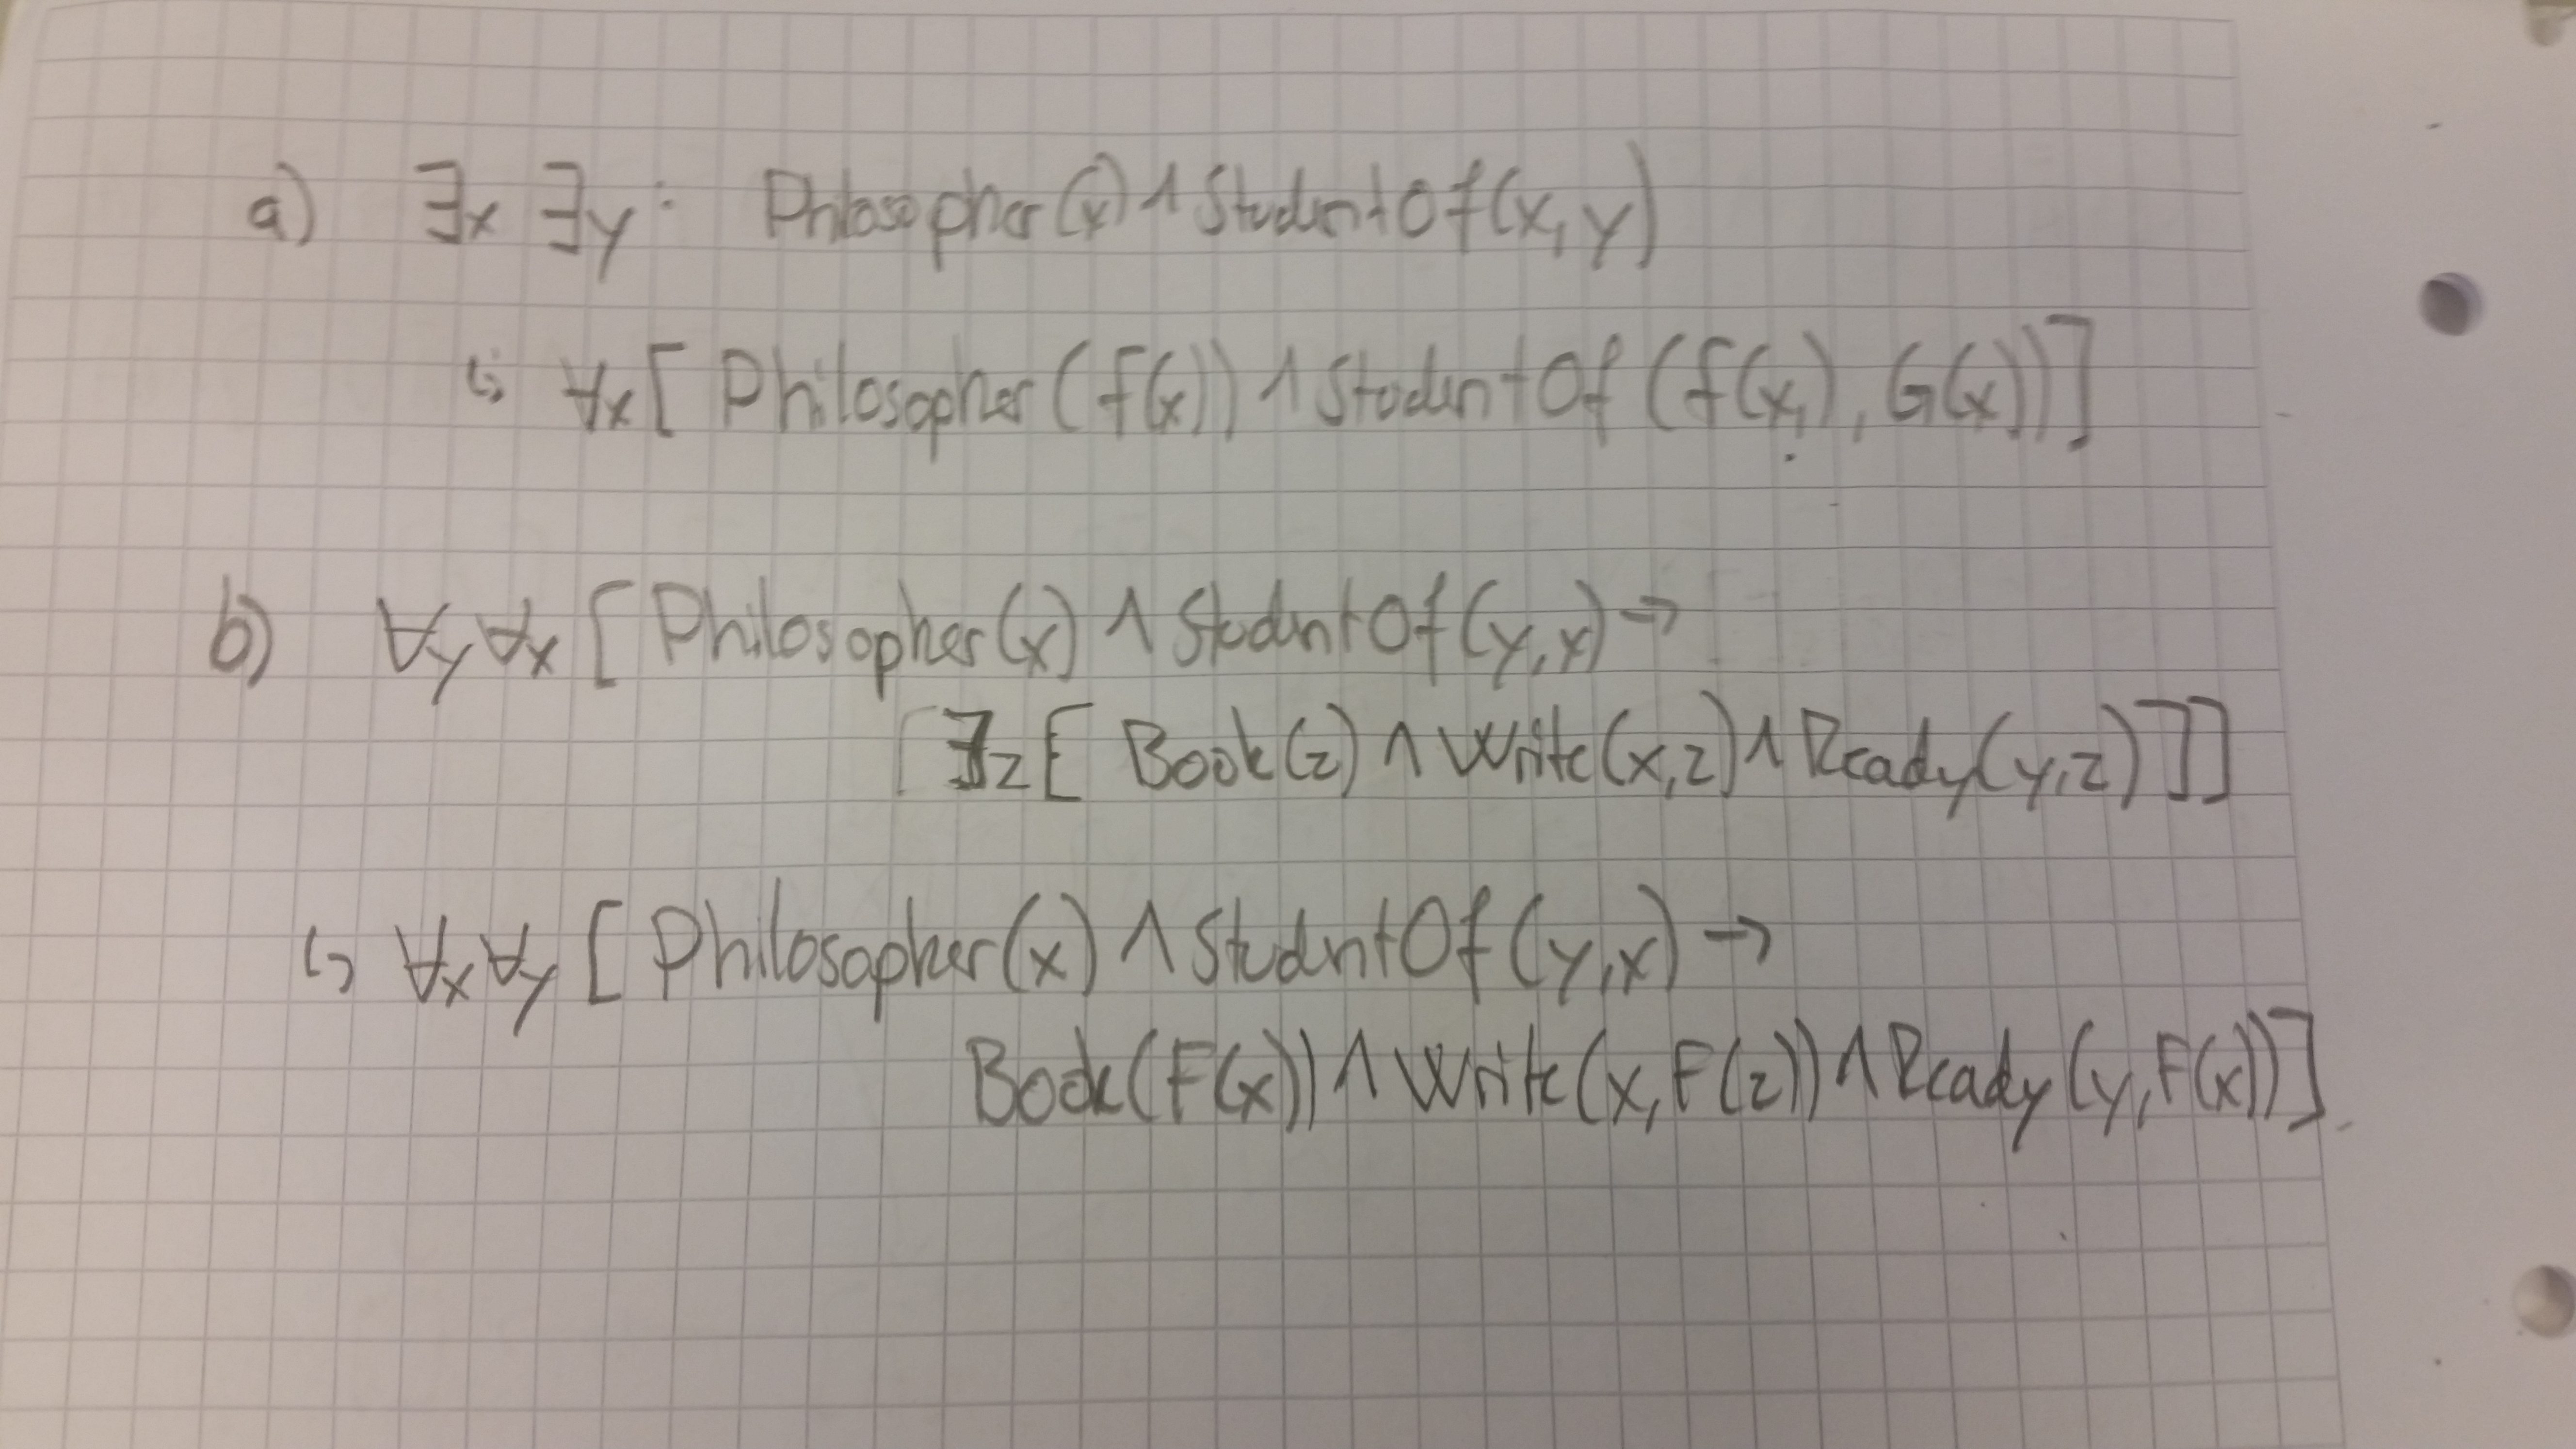 a) ∃x ∃y: Philosopher(x) ∧ StudentOf(x,y)
↳ ∀x[Philosopher(f(x)) ∧ StudentOf(f(x), G(x))]
b) ∀y∀x[Philosopher(x) ∧ StudntOf(y,x) →
∃z[Book(z) ∧ Write(x,z) ∧ Ready(y,z)]]
↳ ∀x∀y[Philosopher(x) ∧ StudntOf(y,x) →
Book(F(x)) ∧ Write(x,F(z)) ∧ Ready(y,F(x))]